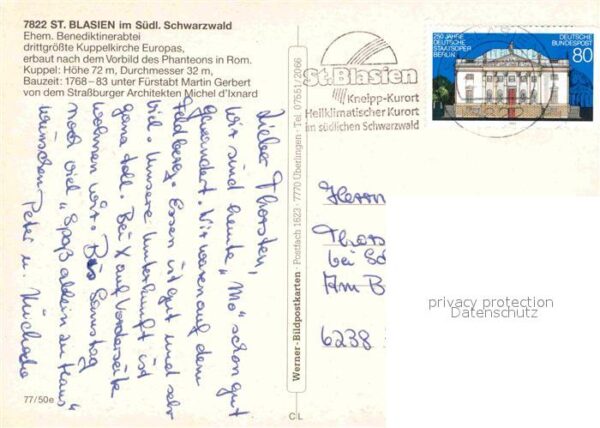 7822 ST. BLASIEN im Südl. Schwarzwald
Ehem. Benediktinerabtei
drittgrößte Kuppelkirche Europas,
erbaut nach dem Vorbild des Phanteons in Rom.
Kuppel: Höhe 72 m, Durchmesser 32 m,
Bauzeit: 1768 – 83 unter Fürstabt Martin Gerbert
von dem Straßburger Architekten Michel d'Ixnard
Lieber Thorsten,
wir sind heute „Mo" schon gut
gewandert. Wir waren auf dem
Feldberg. Essen ist gut und sehr
viel. Unsere Unterkunft ist
ganz toll. Bei X auf Vorderseite
wohnen wir. Bis Samstag
noch viel „Spaß allein zu Haus"
wünschen Peter u.
77/50e
Werner-Bildpostkarten · Postfach 1623 · 7770 Überlingen · Tel. 07551/2066
CL
St. Blasien
Kneipp-Kurort
Heilklimatischer Kurort
im südlichen Schwarzwald
250 JAHRE
DEUTSCHE
STAATSOPER
BERLIN
DEUTSCHE
BUNDESPOST
80
Herrn
Thors
bei Sc
Am B
6238
privacy protection
Datenschutz